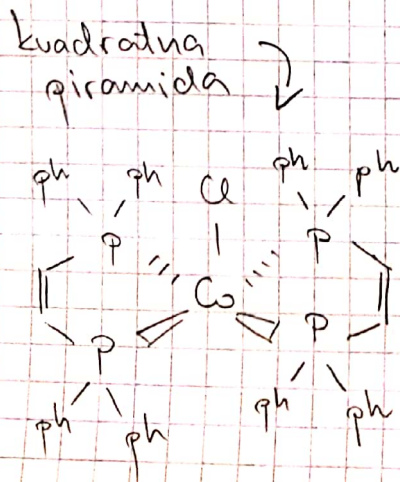 kvadratna
piramida
ph ph Cl ph ph
P P
Co
P P
ph ph ph ph